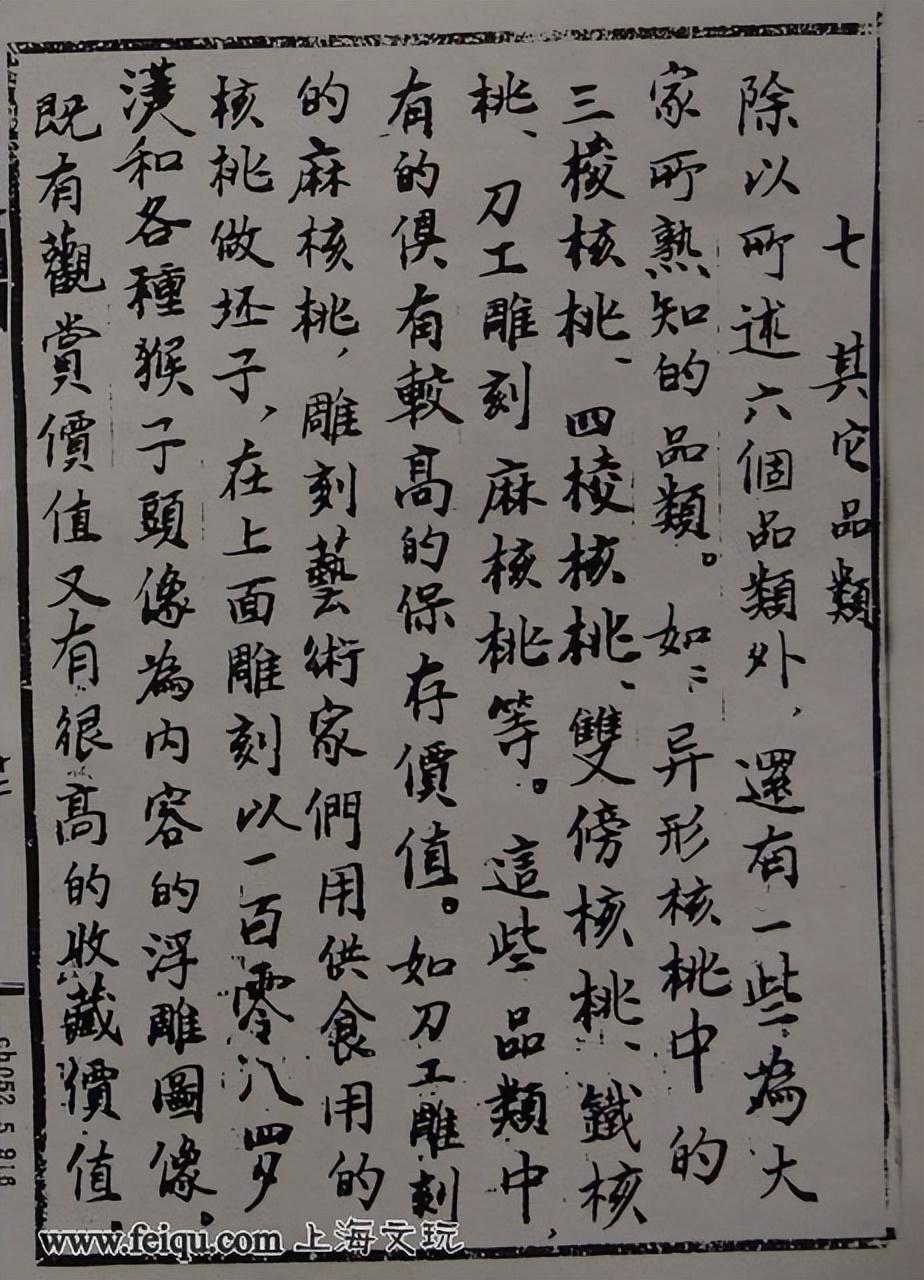 七 其它品類
除以所述六個品類外，還有一些為大
家所熟知的品類。如：异形核桃中的
三棱核桃、四棱核桃、雙傍核桃、鐵核
桃、刀工雕刻麻核桃等。這些品類中，
有的俱有較高的保存價值。如刀工雕刻
的麻核桃，雕刻藝術家們用供食用的
核桃做坯子，在上面雕刻以一百零八罗
漢和各種猴子頭像為内容的浮雕圖像。
既有觀賞價值又有很高的收藏價值.
www.feiqu.com 上海文玩